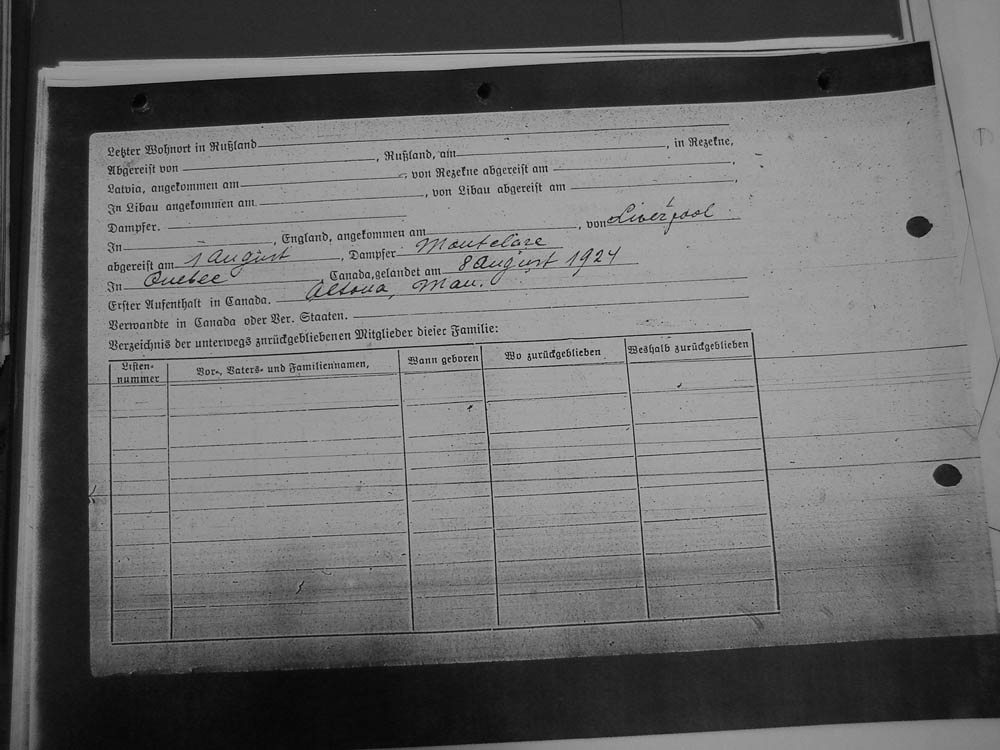 Letzter Wohnort in Rußland
Abgereist von , Rußland, am , in Rezekne,
Latvia, angekommen am , von Rezekne abgereist am ,
In Libau angekommen am , von Libau abgereist am ,
Dampfer.
In , England, angekommen am , von Liverpool
abgereist am 1 August , Dampfer Montclare
In Quebec , Canada, gelandet am 8 August 1924
Erster Aufenthalt in Canada. Altona, Man.
Verwandte in Canada oder Ver. Staaten.
Verzeichnis der unterwegs znrückgebliebenen Mitglieder dieier Familie:
Listen-nummer Vor-, Vaters- und Familiennamen, Wann geboren Wo zurückgeblieben Weshalb zurückgeblieben